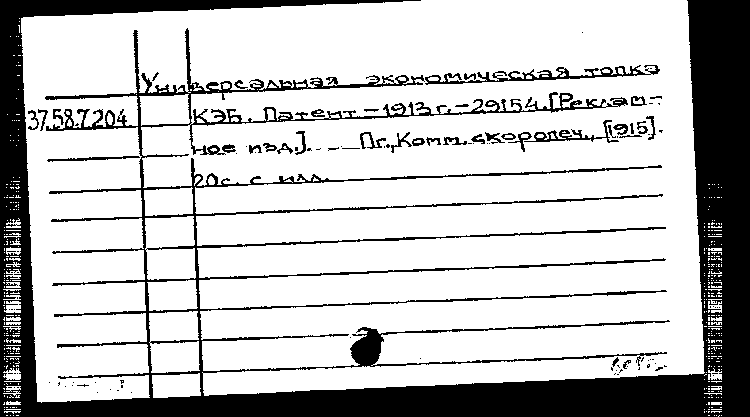 Универсальная экономическая топка
37.58.7.204 КЭБ. Патент – 1913 г. – 29154. [Реклам-
ное изд.]. Пг., Комм. скоропеч., [1915].
20 с. с илл.